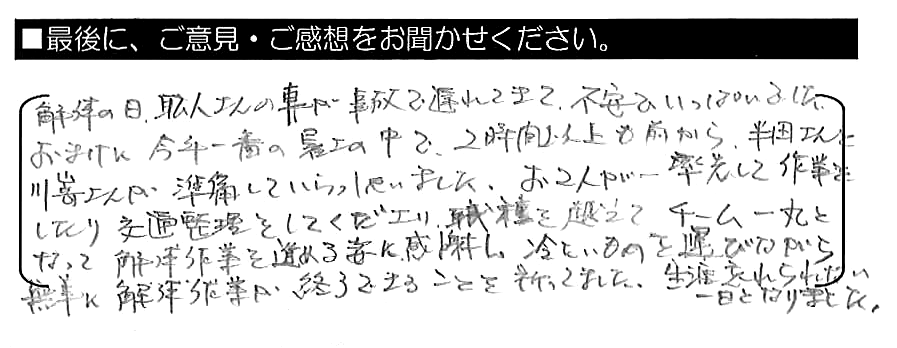 ■最後に、ご意見・ご感想をお聞かせください。
解体の日、職人さんの車が事故で遅れてきて、不安でいっぱいでした。
おまけに今年一番の暑さの中で、2時間以上も前から、半田さんと
川嵜さんが準備していらっしゃいました。お2人が率先して作業を
したり交通整理をしてくださり、職種を越えてチーム一丸と
なって解体作業を進める姿に感謝し、冷たいものを運びながら
無事に解体作業が終了できることを祈ってました。生涯忘れられない
一日となりました。